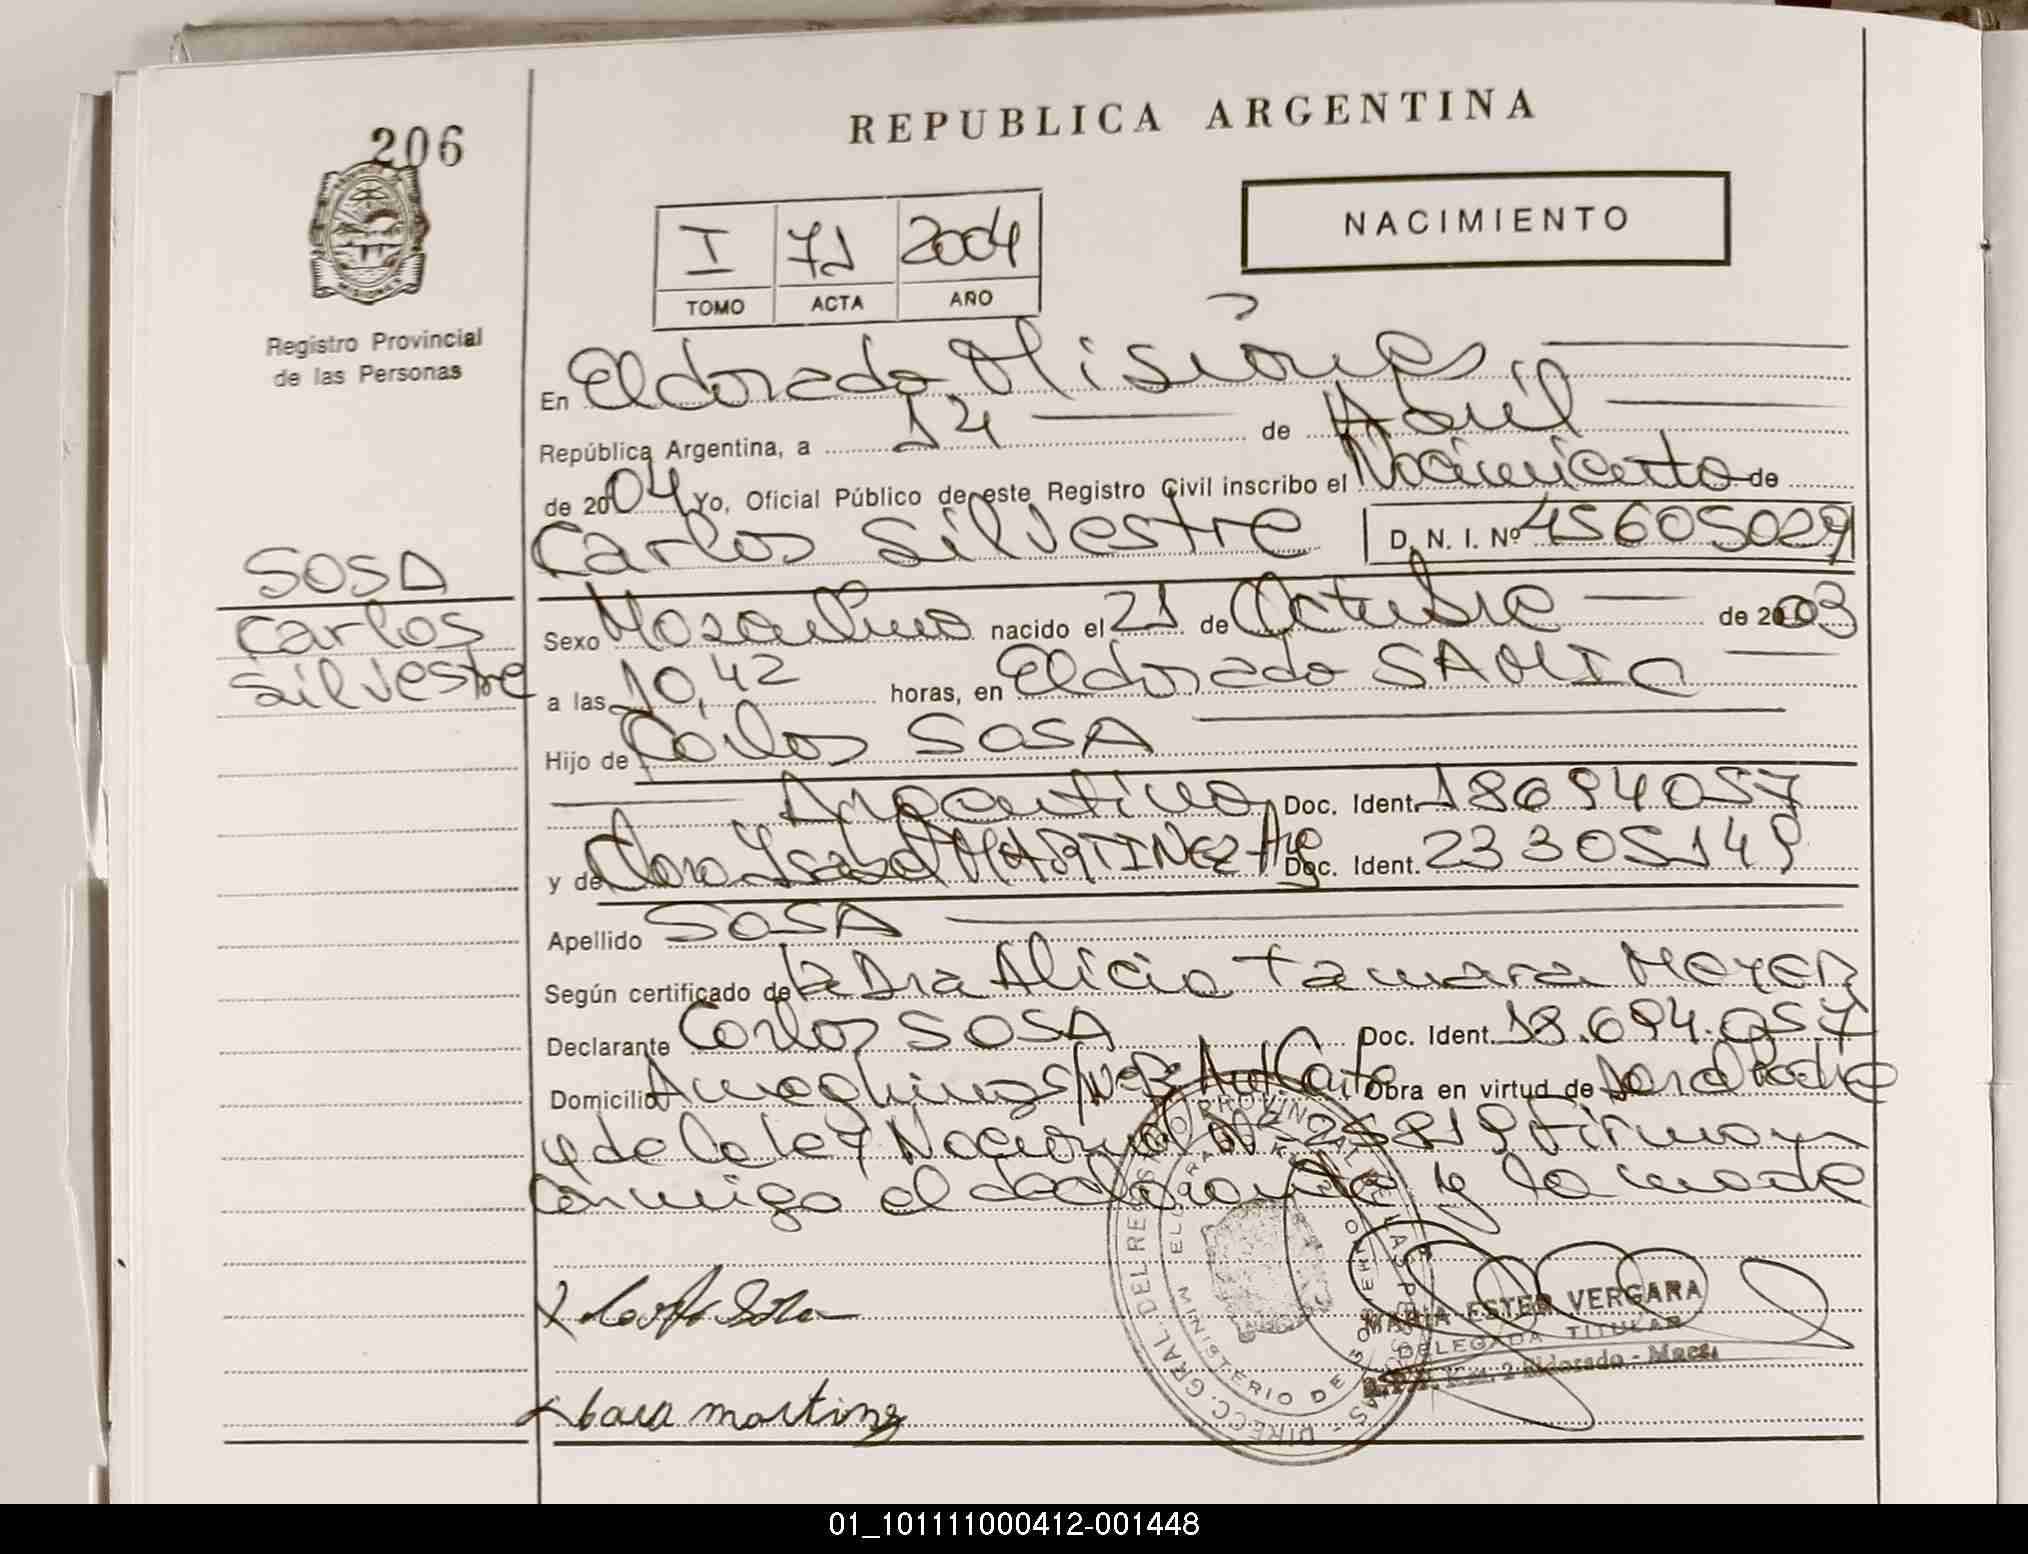 REPUBLICA ARGENTINA
206
NACIMIENTO
I 71 2004
TOMO ACTA AÑO
MISIONES
Registro Provincial
de las Personas
En Eldorado Misiones
República Argentina, a 14 de Abril
de 2004 Yo, Oficial Público de este Registro Civil inscribo el Nacimiento de
Carlos Silvestre D. N. I. Nº 45605029
SOSA
Carlos
Silvestre
Sexo Masculino nacido el 21 de Octubre de 2003
a las 10,42 horas, en Eldorado SAMIC
Hijo de Carlos SOSA
Argentino Doc. Ident. 18694057
y de Clara Isabel MARTINEZ Arg Doc. Ident. 23305149
Apellido SOSA
Según certificado de la Dra Alicia Tamara MEYER
Declarante Carlos SOSA Doc. Ident. 18.694.057
Domicilio Ameghino S/Nº Bº Obra en virtud de
y de la ley Nacional Nº 25819 Firman
conmigo el declarante y la madre
Sosa
MARIA ESTER VERGARA
DELEGADA TITULAR
R.P.P. Km. 2 Eldorado - Mnes.
DIRECC. GRAL. DEL REGISTRO PROVINCIAL DE LAS PERSONAS
MINISTERIO DE GOBIERNO
martinez
01_101111000412-001448